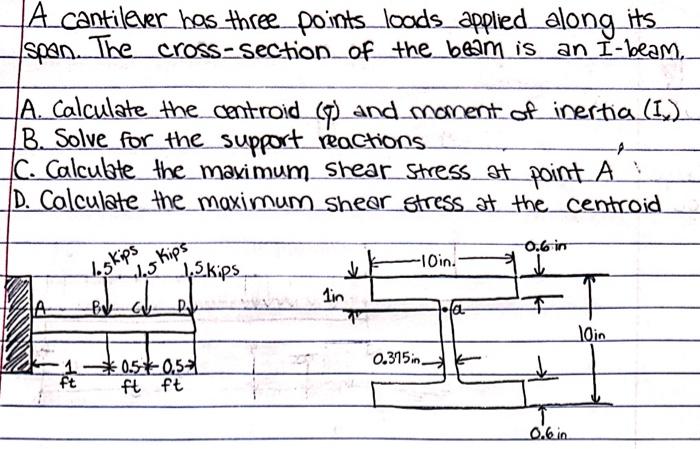 A cantilever has three points loads applied along its
span. The cross-section of the beam is an I-beam.
A. Calculate the centroid (ȳ) and moment of inertia (Iₓ)
B. Solve for the support reactions
C. Calculate the maximum shear stress at point A
D. Calculate the maximum shear stress at the centroid
1.5 kips 1.5 kips 1.5 kips
A B C D
1 ft 0.5 ft 0.5 ft
10in. 0.6 in
1in
a
10in
0.375in
0.6 in